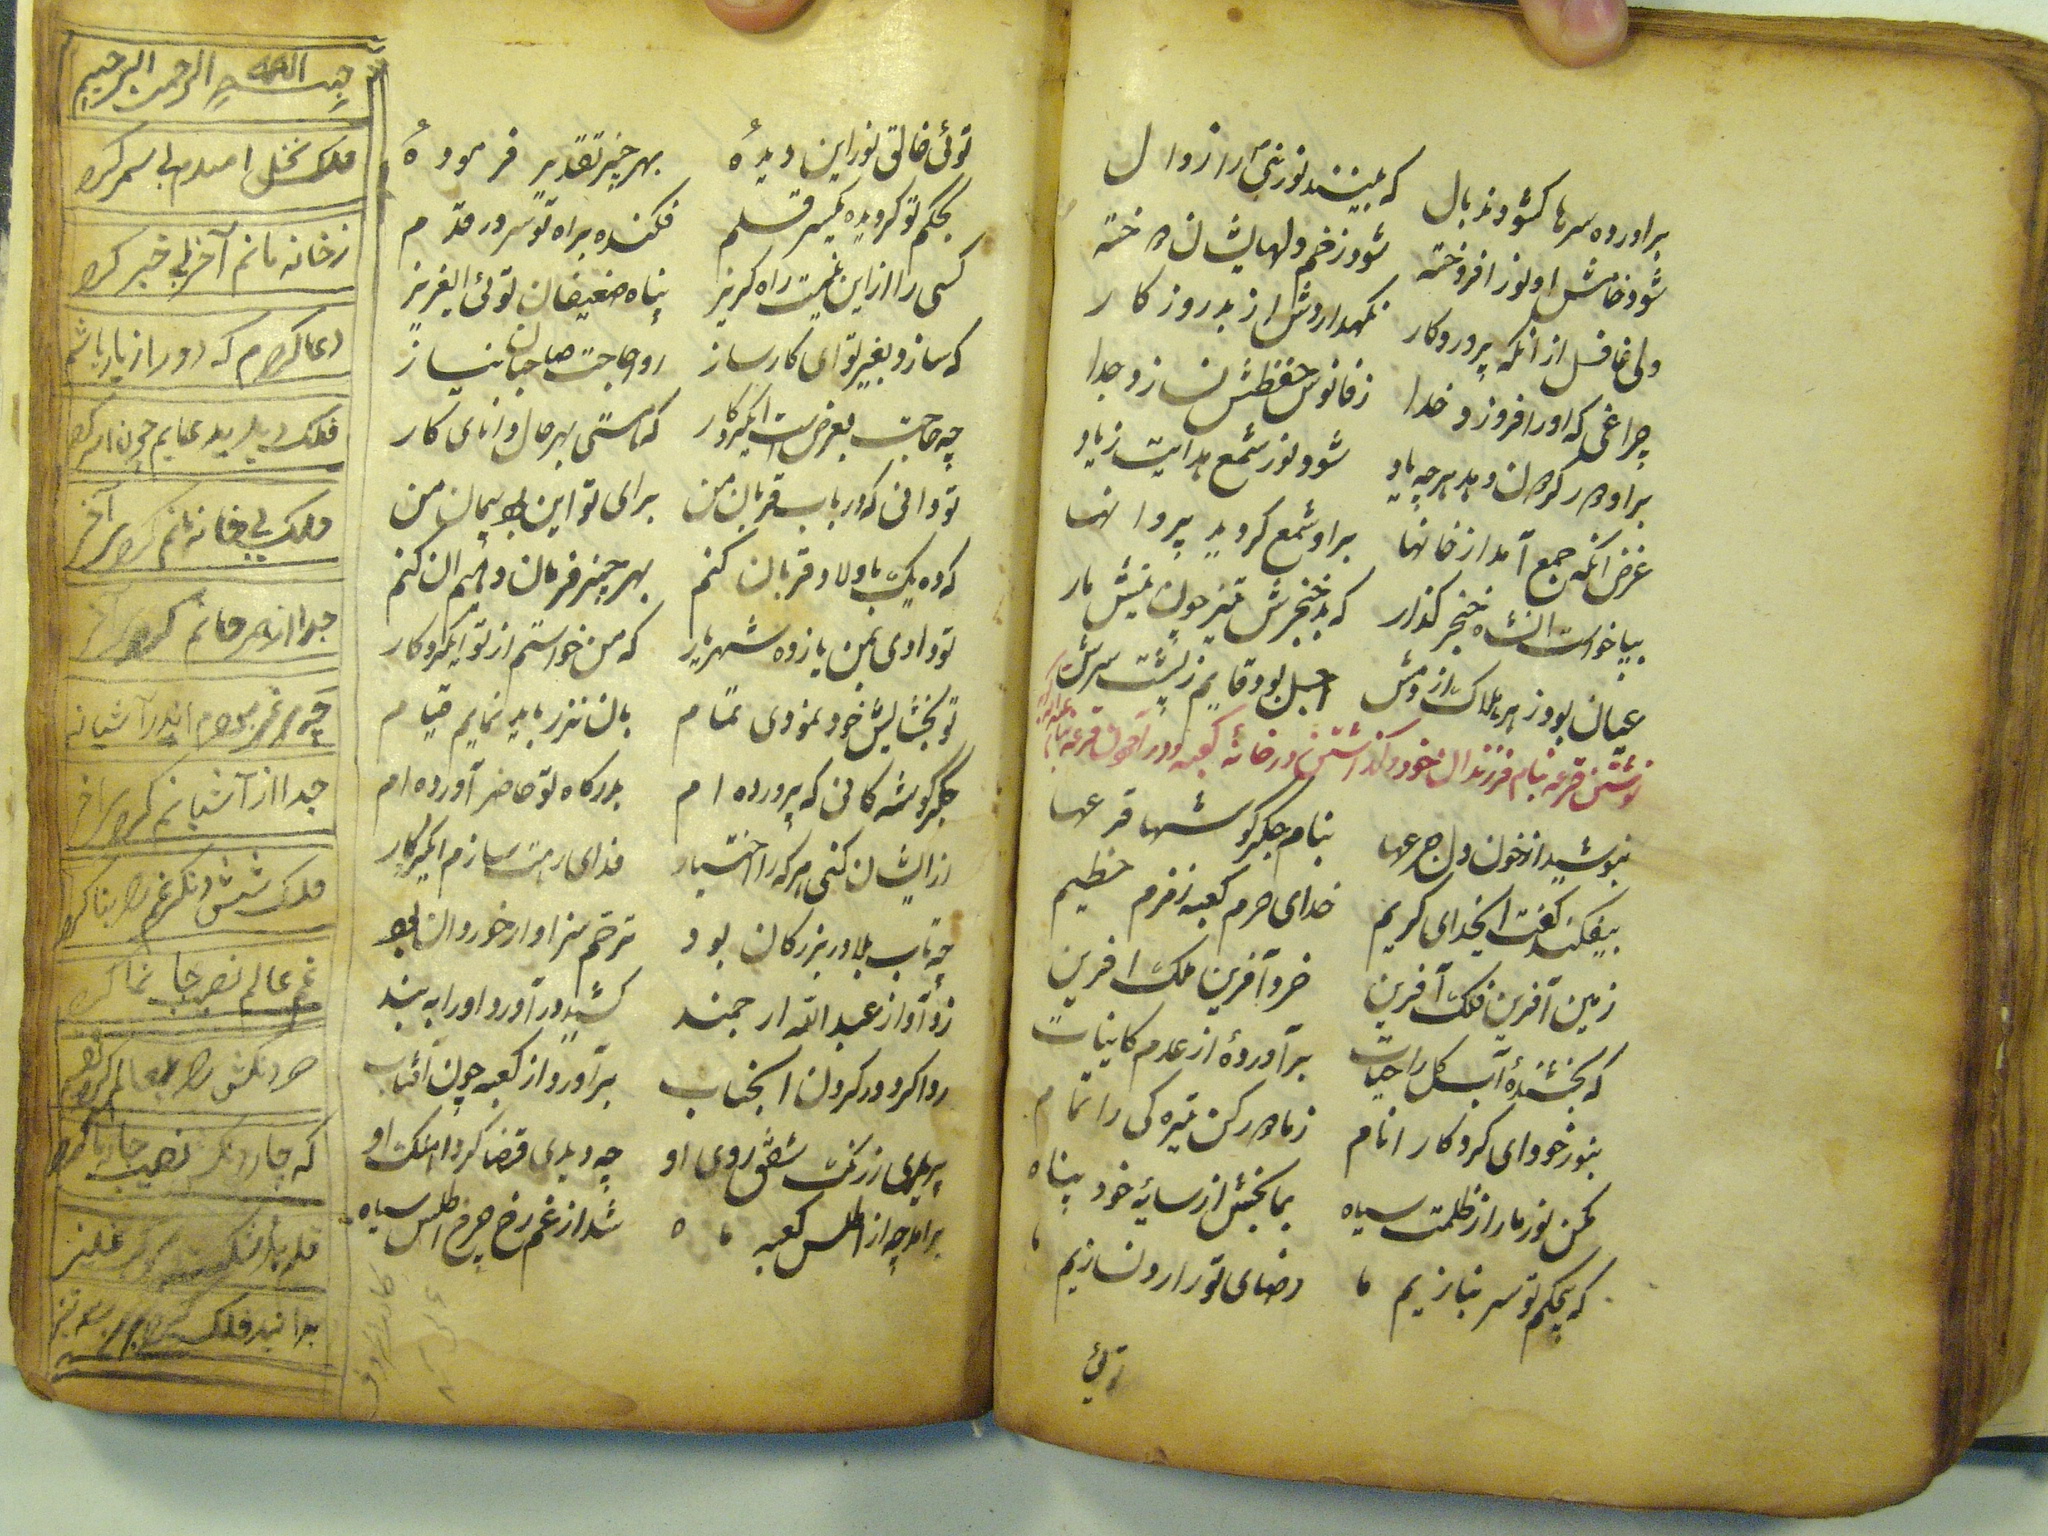 براورده سرها کشودند بال که بینند نور نبی را زوال
شود خامش او نور افروخته شود زخم دلهایشان دوخته
ولی غافل از آنکه پروردکار نکهداردش از بد روزکار
چراغی که او را فروزد خدا ز فانوس حفظش نسازد جدا
شود نور شمع هدایت زیاد
غرض آنکه جمع آمد از خانها بر او شمع کردید پروانها
بپا خواست انشاه خنجر کذار که بد خنجرش تیز چون نیش مار
عیان بود زهر هلاک از دمش اجل بود قایم ز پشت سرش
نوشتن قرعه بنام فرزندان خود و کذاشتن در خانهٔ کعبه و در آمدن قرعه بنام عبدالله
بنوشید از خون دل جرعها بنام جکر کوشها قرعها
بیفکند کفت ایخدای کریم خدای حرم کعبه زمزم حطیم
زمین آفرین فلک آفرین خرد آفرین ملک افرین
که بخشندهٔ آب کل را حیات برآوردهٔ از عدم کاینات
بنور خود ای کردکار انام ز ما دور کن تیره کی را تمام
مکن نور ما را ز ظلمت سیاه بما بخش از سایهٔ خود پناه
که بحکم تو سر نبازیم ما رضای تو را رد نسازیم ما
توئی
توئی خالق نور این دیدهٔ بهر چیز تقدیر فرمودهٔ
بحکم تو کردیده یکسر قلم فکنده براه تو سر در قدم
کسی را از این نیست راه کریز پناه ضعیفان توئی ایعزیز
که سازد بغیر تو ای کارساز روا حاجت صاحبان نیاز
چه حاجت بعرض است ایکردکار که هستی بهر حال دانای کار
تو دانی که در باب قربان من برای تو این بود پیمان من
که ده یک باولاد قربان کنم بهر چیز فرمان دهی آن کنم
تو دادی بمن یازده شهریار که من خواستم از تو ایکردکار
تو بخشایش خود نمودی تمام بان نذر باید نمایم قیام
جکر کوشه کانی که پرورده ام بدرکاه تو حاضر آورده ام
از ایشان کنی هر که را اختیار فدای رهت سازم ایکردکار
چه تاب بلا در بزرکان بود ترحم سزاوار خوردان بود
زد آواز عبدالله ارجمند کشید در آورد او را به بند
روا کرد در کردن انجناب برآورد از کعبه چون آفتاب
پرید رنک شفق روی او چه دیدی قضا کرد او
برآمد چه از اطلس کعبه ماه شد از غم رخ چرخ اطلس سیاه
بسم الله الرحمن الرحیم
فلک نخل امیدم بی ثمر کرد
ز خانه مانم آخر بی خبر کرد
دعا کردم که دور از یار باشم
فلک دیدید
فلک بی خانه مانم کرد آخر
جدا از مانم کرد آخر
چه مرغی بودم اندر آشیانه
جدا از آشیانم کرد آخر
فلک شش دنک غم را بنا کرد
غم عالم نصیب جان ما کرد
دو دنکش را بعالم کرد
که چار دنک نصیب جان ما کرد
فلک
بدانید فلک